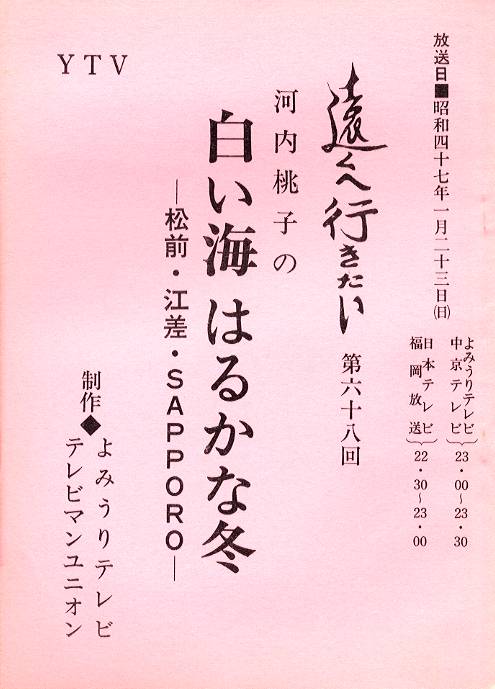 放送日■昭和四十七年一月二十三日(日)
よみうりテレビ
中京テレビ
23・00～23・30
日本テレビ
福岡放送
22・30～23・00
遠くへ行きたい 第六十八回
河内桃子の
白い海はるかな冬
―松前・江差・SAPPORO―
制作◆よみうりテレビ
テレビマンユニオン
YTV